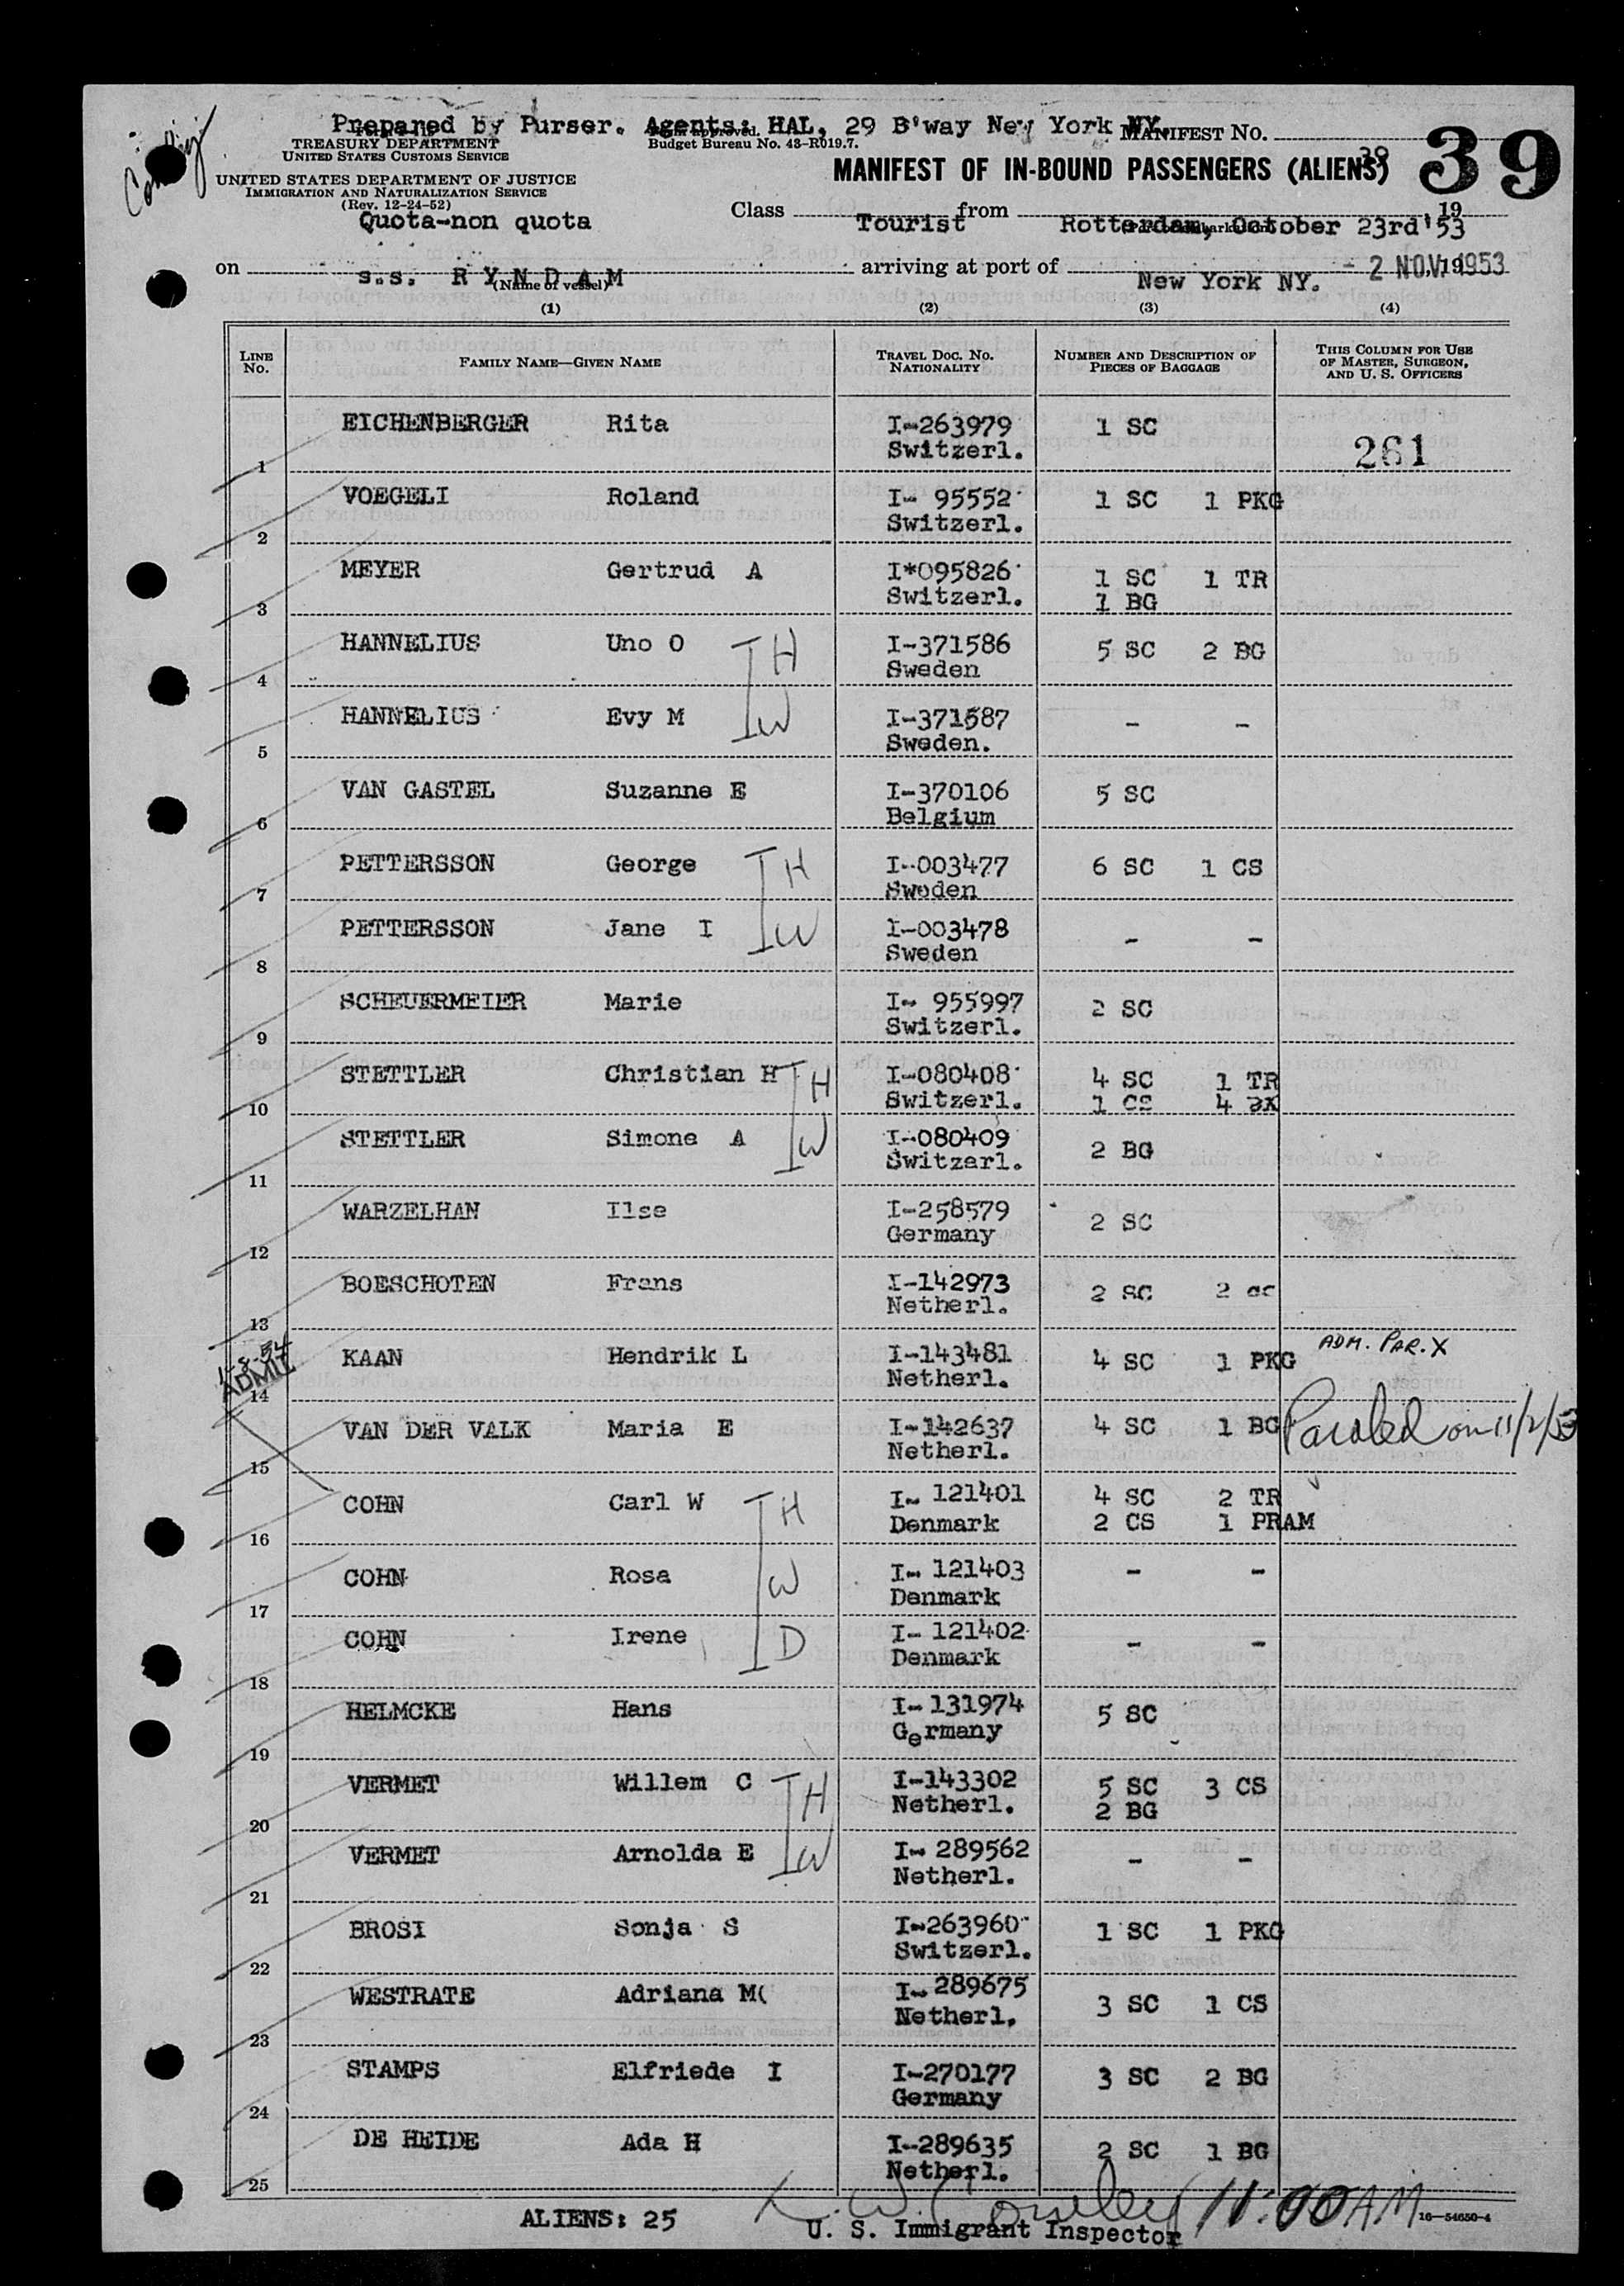 Prepared by Purser. Agents: HAL, 29 B'way New York NY.
TREASURY DEPARTMENT
UNITED STATES CUSTOMS SERVICE
Budget Bureau No. 43-R019.7.
MANIFEST NO.
39
UNITED STATES DEPARTMENT OF JUSTICE
IMMIGRATION AND NATURALIZATION SERVICE
(Rev. 12-24-52)
MANIFEST OF IN-BOUND PASSENGERS (ALIENS)
Quota-non quota
Class Tourist from Rotterdam, October 23rd '53 19
on s.s. RYNDAM arriving at port of New York NY. - 2 NOV. 1953
(Name of vessel)
(1) (2) (3) (4)
LINE No. FAMILY NAME—GIVEN NAME TRAVEL DOC. NO. NATIONALITY NUMBER AND DESCRIPTION OF PIECES OF BAGGAGE THIS COLUMN FOR USE OF MASTER, SURGEON, AND U. S. OFFICERS
1 EICHENBERGER Rita I-263979 Switzerl. 1 SC 261
2 VOEGELI Roland I- 95552 Switzerl. 1 SC 1 PKG
3 MEYER Gertrud A I*095826 Switzerl. 1 SC 1 TR 1 BG
4 HANNELIUS Uno O H I-371586 Sweden 5 SC 2 BG
5 HANNELIUS Evy M W I-371587 Sweden. - -
6 VAN GASTEL Suzanne E I-370106 Belgium 5 SC
7 PETTERSSON George H I-003477 Sweden 6 SC 1 CS
8 PETTERSSON Jane I W I-003478 Sweden - -
9 SCHEUERMEIER Marie I- 955997 Switzerl. 2 SC
10 STETTLER Christian H H I-080408 Switzerl. 4 SC 1 TR 1 CS 4 BX
11 STETTLER Simone A W I-080409 Switzerl. 2 BG
12 WARZELHAN Ilse I-258579 Germany 2 SC
13 BOESCHOTEN Frans I-142973 Netherl. 2 SC 2
14 KAAN Hendrik L I-143481 Netherl. 4 SC 1 PKG ADM. PAR. X
15 VAN DER VALK Maria E I-142637 Netherl. 4 SC 1 BG Paroled on 11/2/53
16 COHN Carl W H I- 121401 Denmark 4 SC 2 TR 2 CS 1 PRAM
17 COHN Rosa W I- 121403 Denmark - -
18 COHN Irene D I- 121402 Denmark - -
19 HELMCKE Hans I- 131974 Germany 5 SC
20 VERMET Willem C H I-143302 Netherl. 5 SC 3 CS 2 BG
21 VERMET Arnolda E W I- 289562 Netherl. - -
22 BROSI Sonja S I-263960 Switzerl. 1 SC 1 PKG
23 WESTRATE Adriana M( I- 289675 Netherl. 3 SC 1 CS
24 STAMPS Elfriede I I-270177 Germany 3 SC 2 BG
25 DE HEIDE Ada H I-289635 Netherl. 2 SC 1 BG
ALIENS: 25
U. S. Immigrant Inspector
11:00 AM
16—54650-4